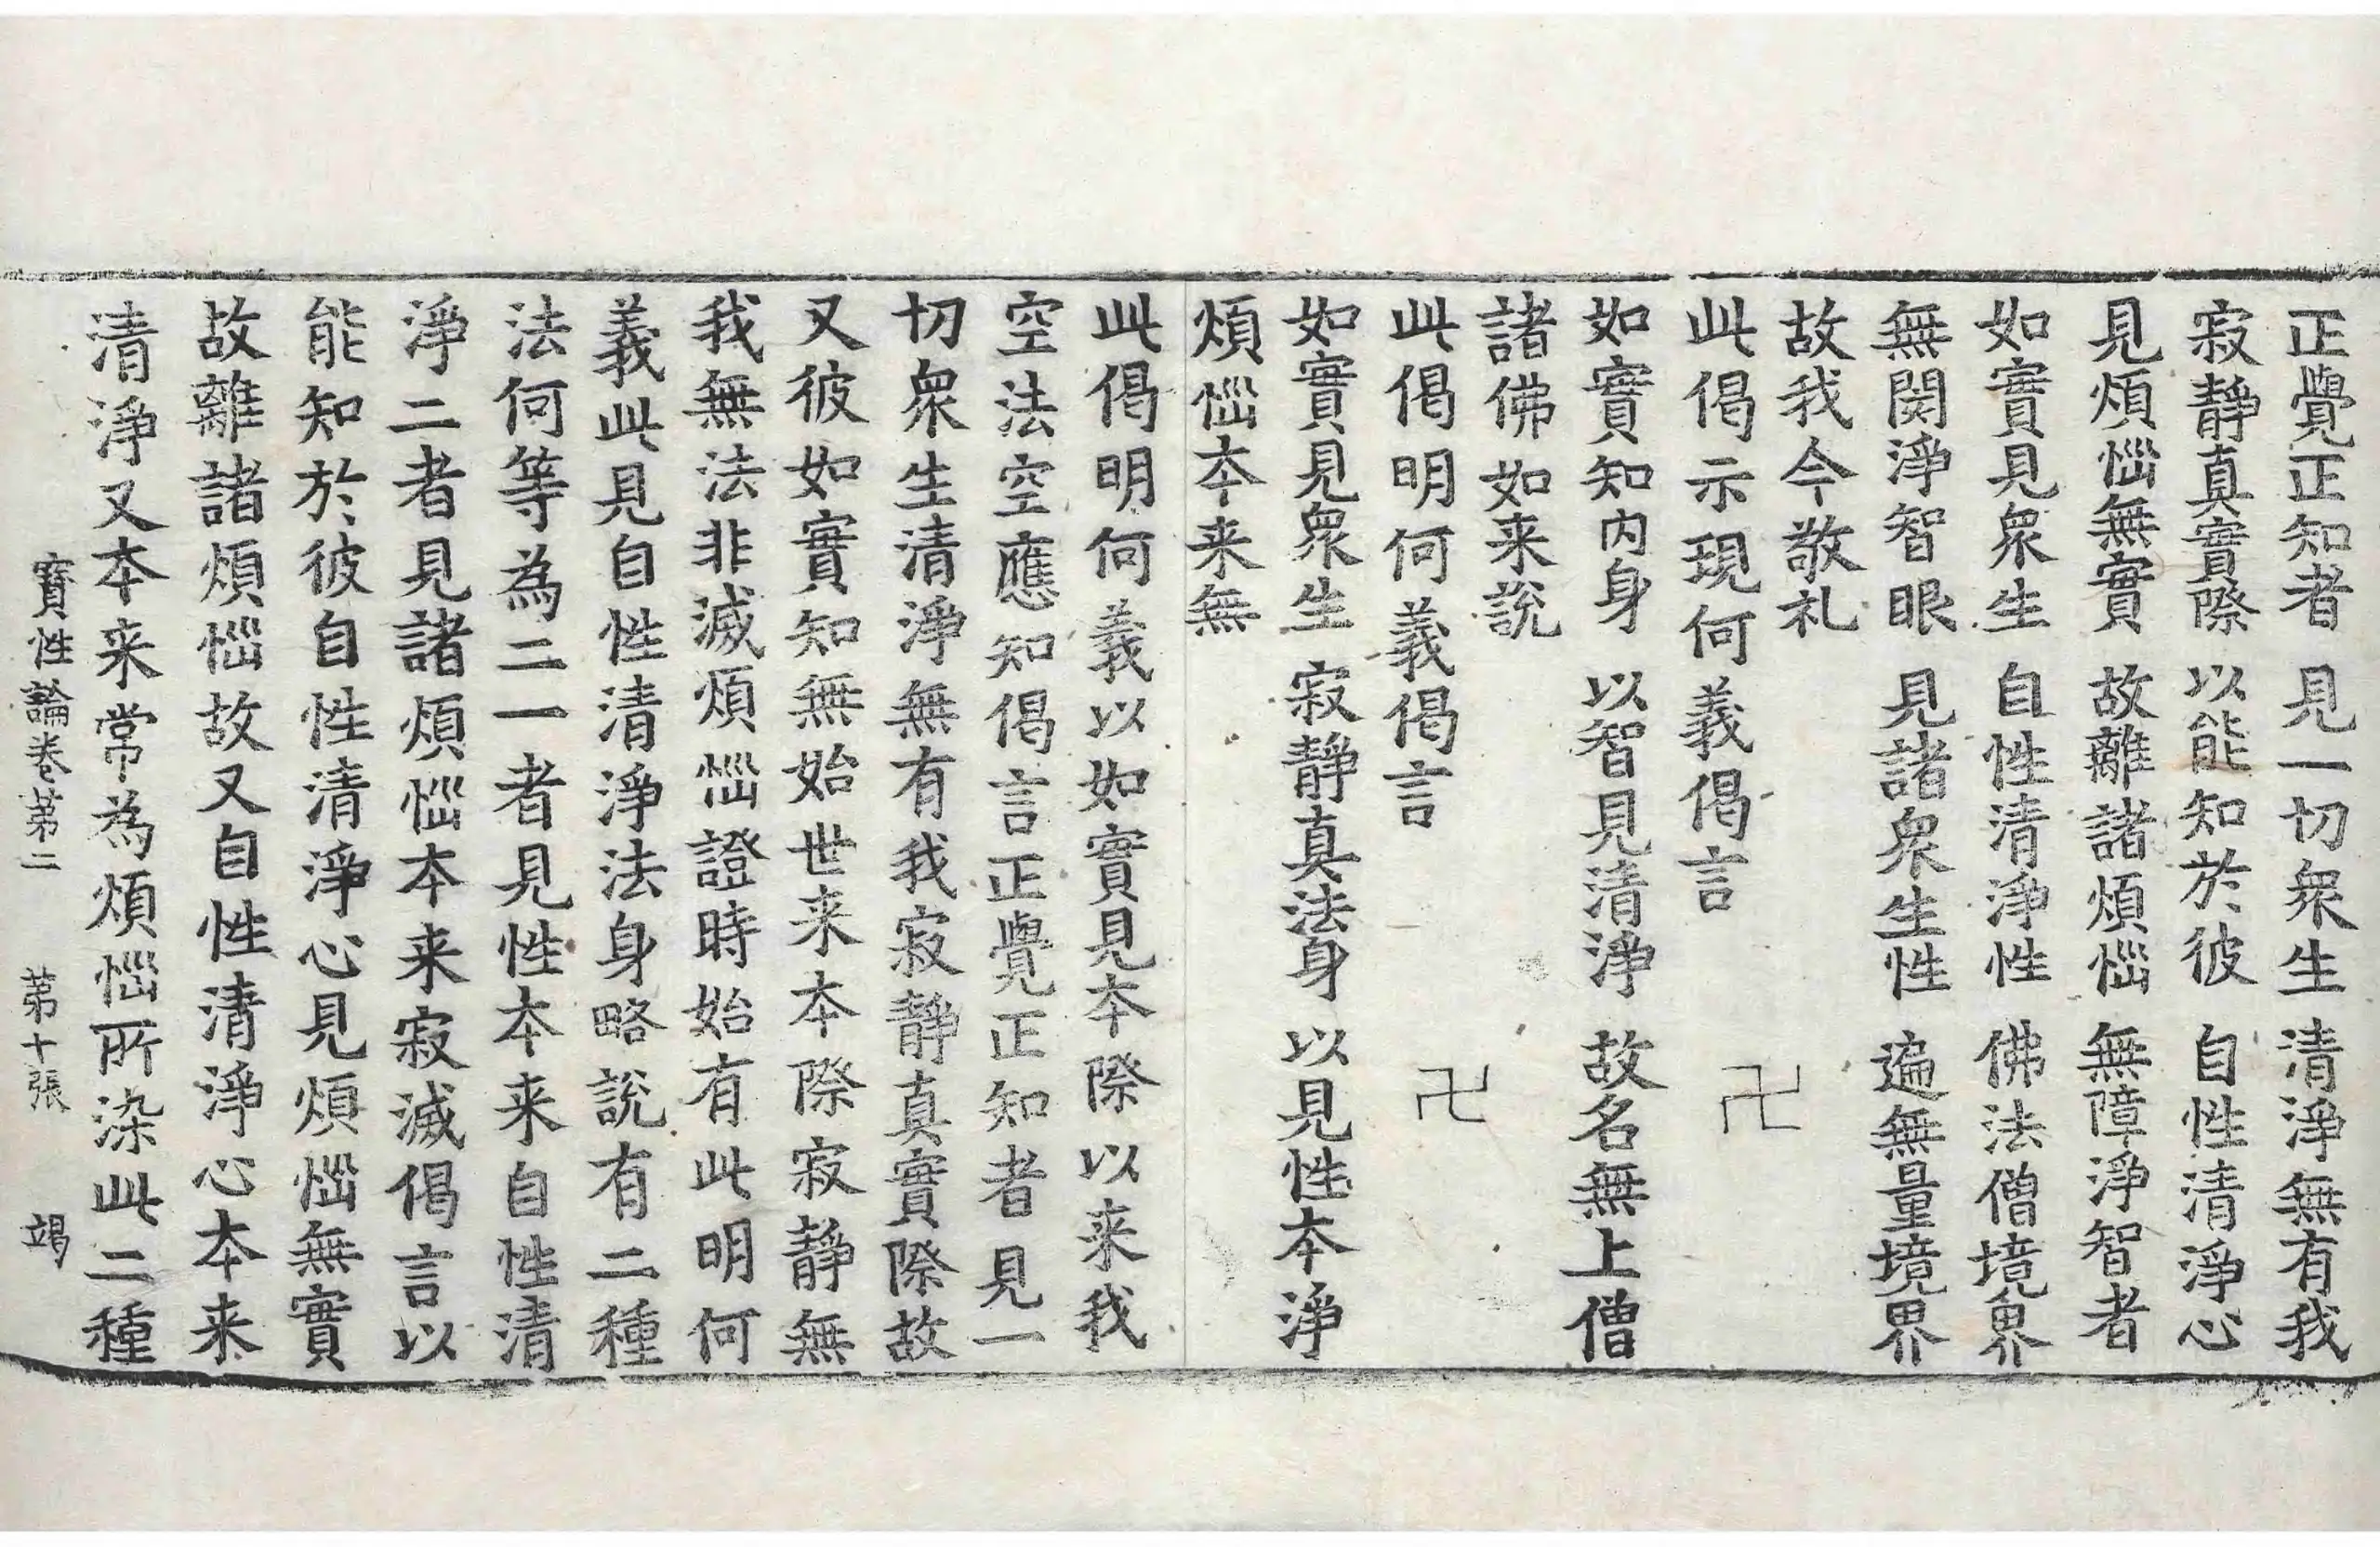 正覺正知者 見一切衆生 清淨無有我
寂靜真實際 以能知於彼 自性清淨心
見煩惱無實 故離諸煩惱 無障淨智者
如實見衆生 自性清淨性 佛法僧境界
無閡淨智眼 見諸衆生性 遍無量境界
故我今敬礼
此偈示現何義偈言 卍
如實知内身 以智見清淨 故名無上僧
諸佛如来說
此偈明何義偈言 卍
如實見衆生 寂靜真法身 以見性本淨
煩惱本来無
此偈明何義以如實見本際以来我
空法空應知偈言正覺正知者見一
切衆生清淨無有我寂靜真實際故
又彼如實知無始世来本際寂靜無
我無法非滅煩惱證時始有此明何
義此見自性清淨法身略說有二種
法何等為二一者見性本来自性清
淨二者見諸煩惱本来寂滅偈言以
能知於彼自性清淨心見煩惱無實
故離諸煩惱故又自性清淨心本来
清淨又本来常為煩惱所染此二種
寶性論卷第二 第十張 竭